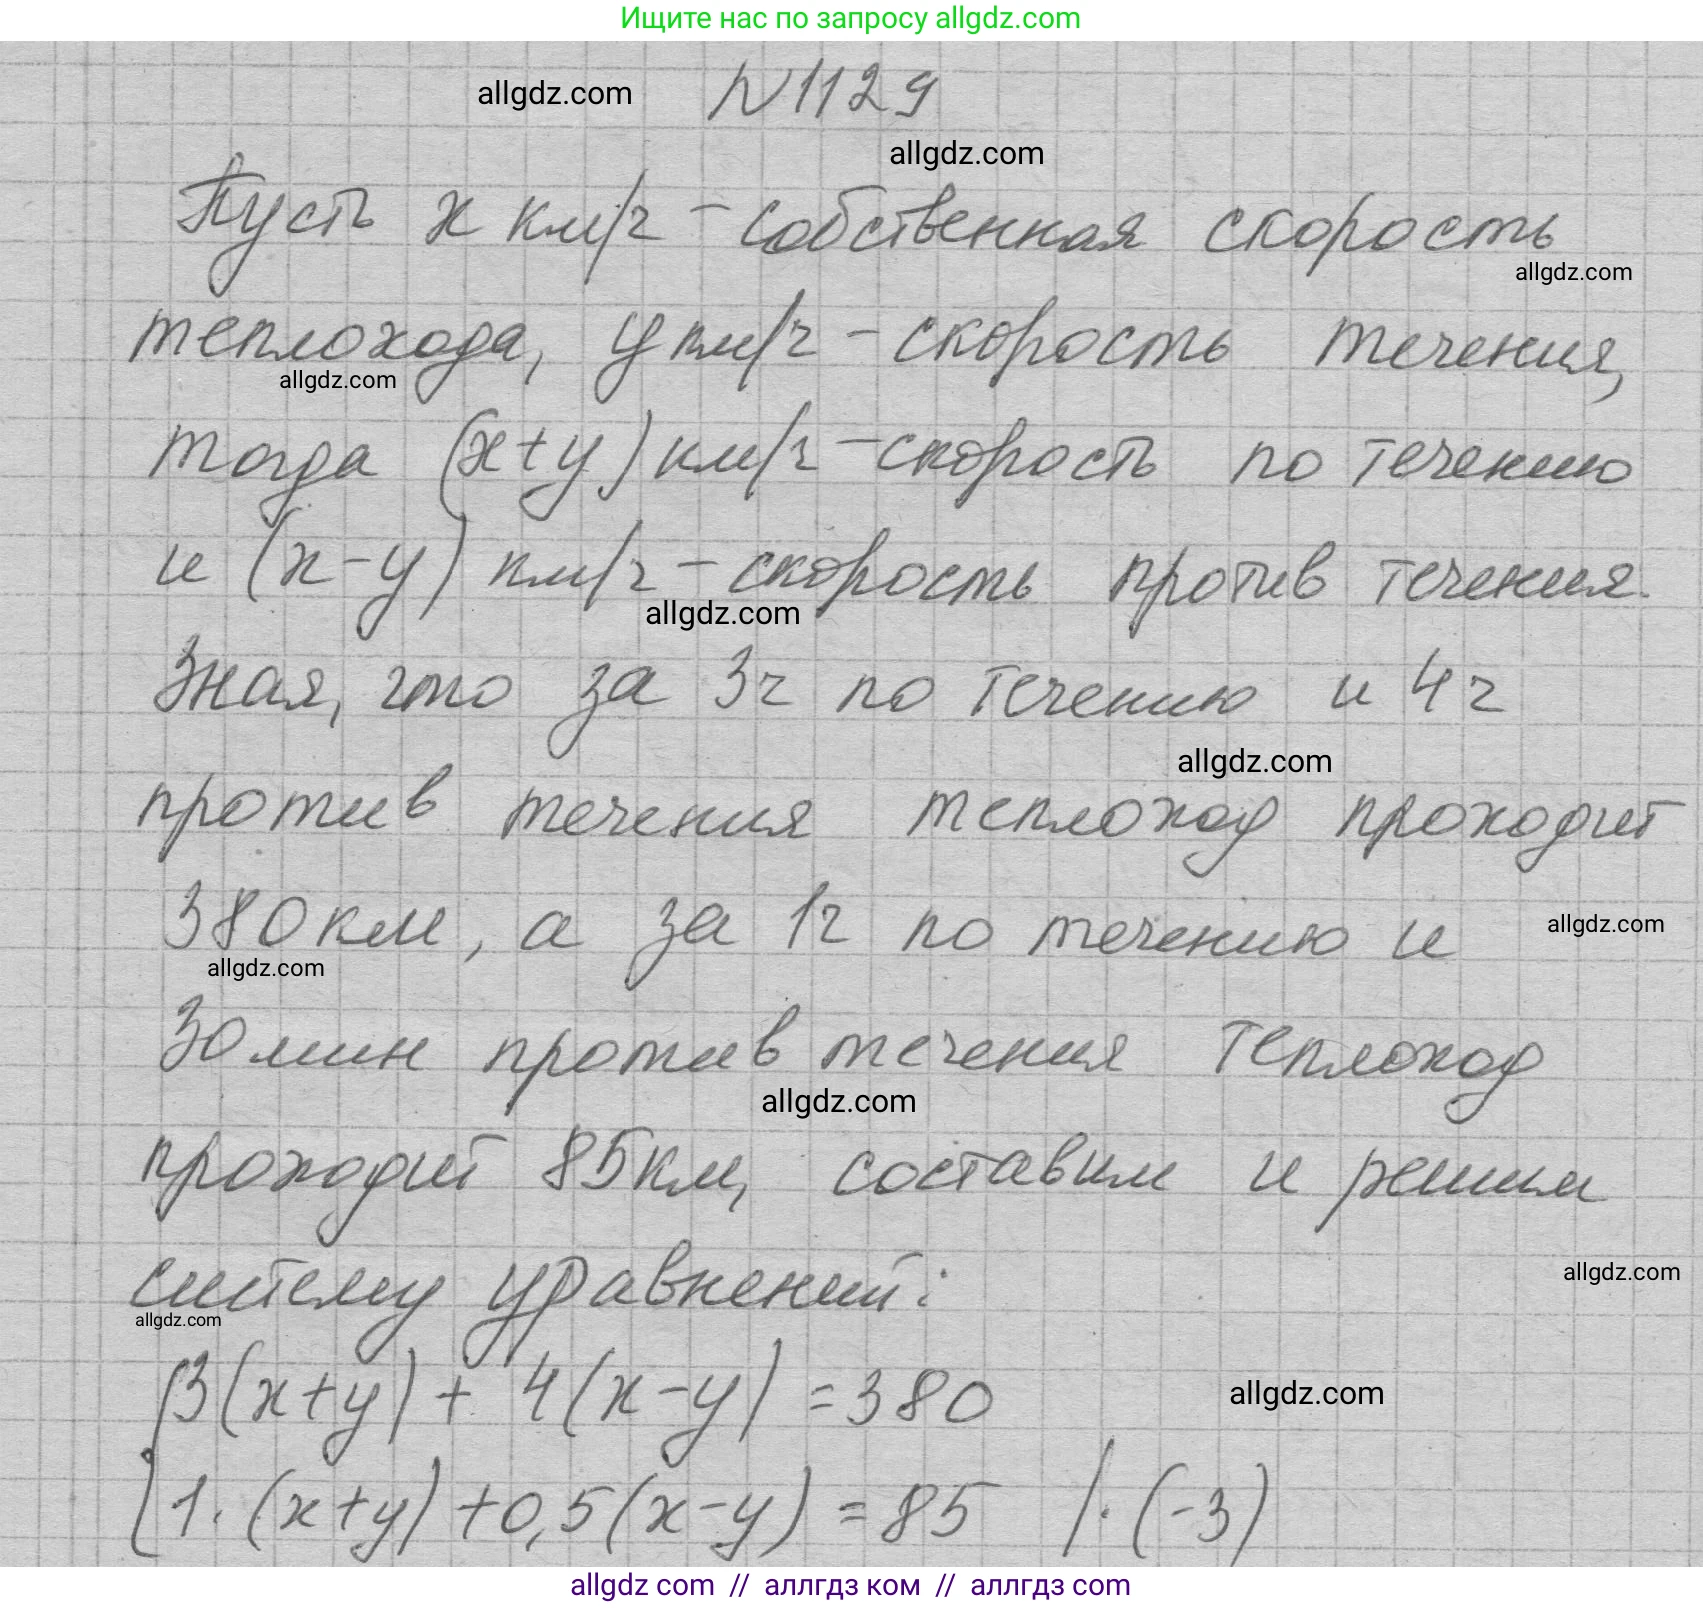 Ищите нас по запросу allgdz.com
allgdz.com
N 1129
allgdz.com
Пусть x км/ч – собственная скорость
allgdz.com
теплохода, y км/ч – скорость течения,
allgdz.com
тогда (x+y) км/ч – скорость по течению
и (x-y) км/ч – скорость против течения.
allgdz.com
Зная, что за 3ч по течению и 4ч
allgdz.com
против течения теплоход проходит
380 км, а за 1ч по течению и
allgdz.com
allgdz.com
30 мин против течения теплоход
allgdz.com
проходит 85 км, составим и решим
систему уравнений:
allgdz.com
allgdz.com
{3(x+y) + 4(x-y) = 380
allgdz.com
1·(x+y) + 0,5(x-y) = 85 /·(-3)
allgdz com // аллгдз ком // аллгдз com